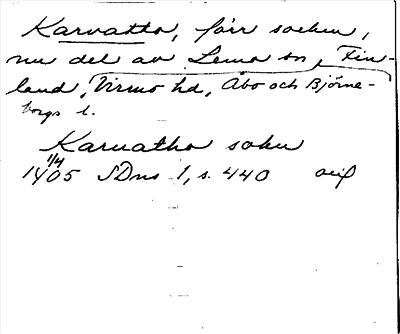 Karvatto, förr socken,
nu del av Lemo sn, Fin-
land, Virmo hd, Åbo och Björne-
borgs l.
Karuatho sokn
1/4
1405 SDns 1, s. 440 orig